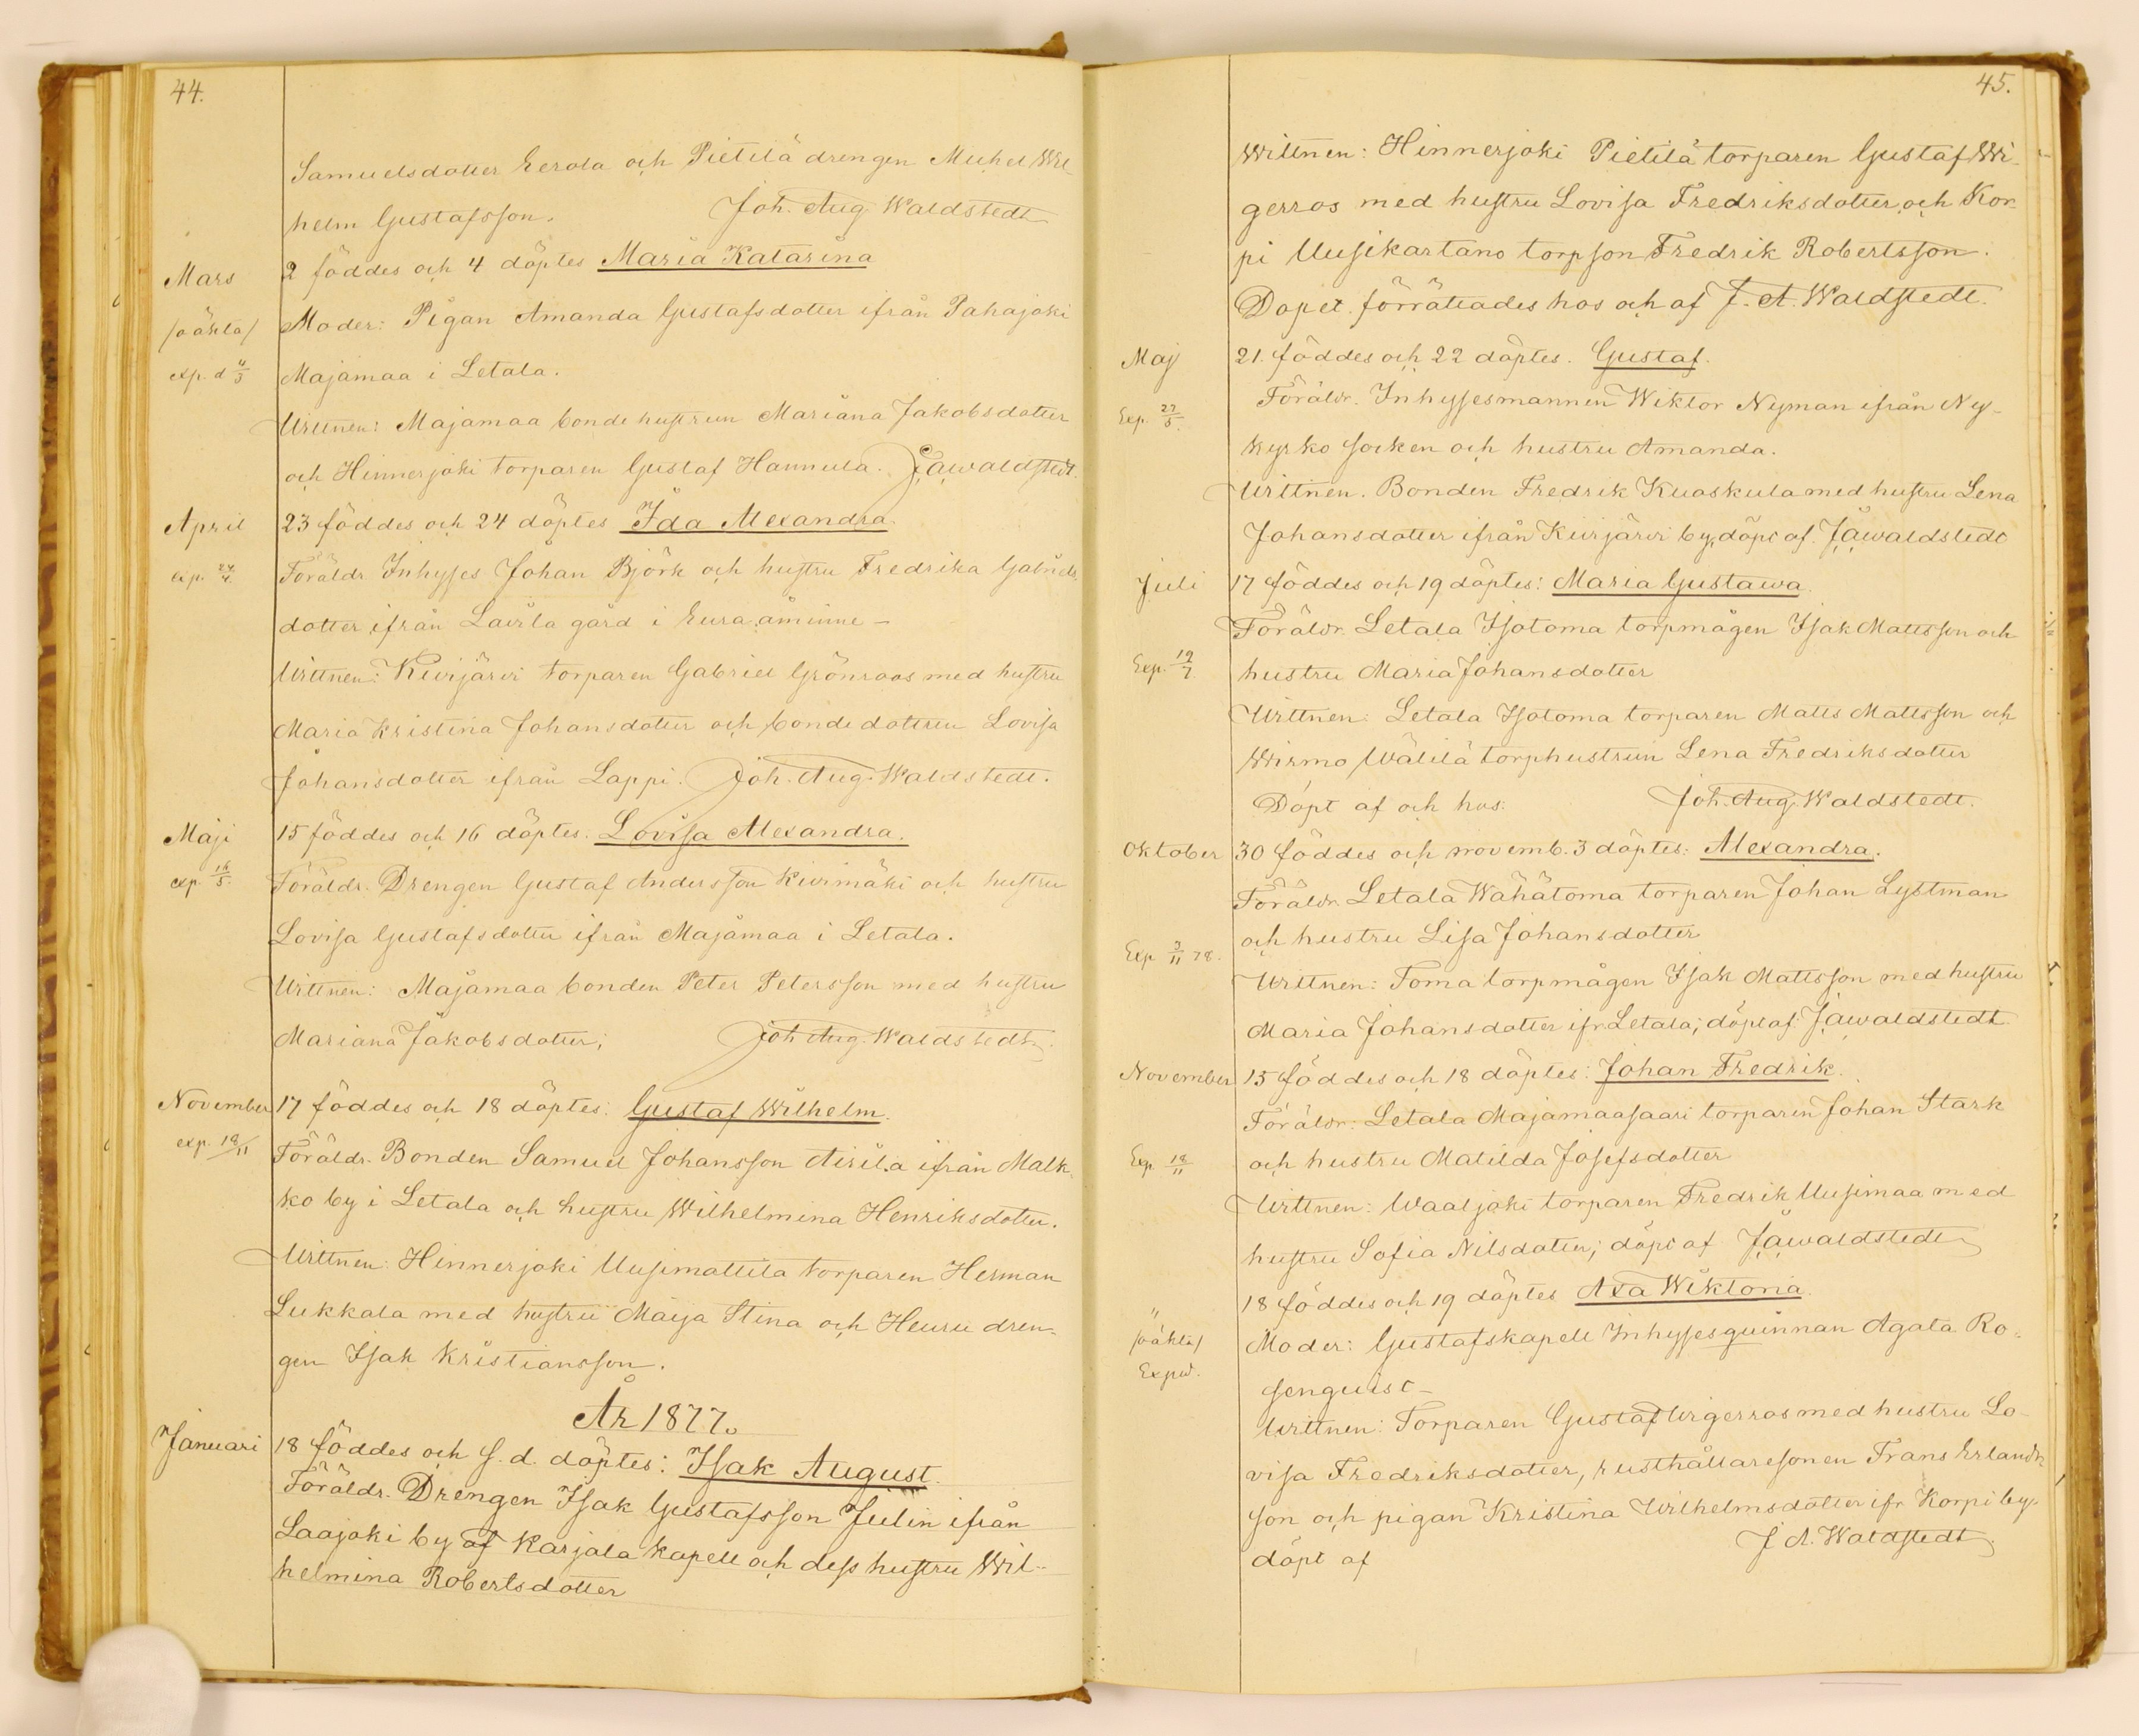 44.
Samuelsdotter Eerola och Pietilä drengen Michel Wil
helm Gustafsson. Joh. Aug. Waldstedt
Mars 2 föddes och 4 döptes Maria Katarina
/oäkta/ Moder: Pigan Amanda Gustafsdotter ifrån Pahajoki
exp. d 4/3 Majamaa i Letala.
Wittnen: Majamaa bonde hustrun Mariana Jakobsdotter
och Hinnerjoki torparen Gustaf Hannula. JAWaldstedt.
April 23 föddes och 24 döptes Ida Alexandra.
exp. 24/4 Föräldr. Inhyses Johan Björk och hustru Fredrika Gabriels
dotter ifrån Lavila gård i Eura åminne –
Wittnen: Kivijärvi torparen Gabriel Grönroos med hustru
Maria Kristina Johansdotter och bonde dottren Lovisa
Johansdotter ifrån Lappi. Joh. Aug. Waldstedt.
Maji 15 föddes och 16 döptes. Lovisa Alexandra.
exp. 16/5. Föräldr. Drengen Gustaf Andersson Kivimäki och hustru
Lovisa Gustafsdotter ifrån Majamaa i Letala.
Wittnen: Majamaa bonden Peter Petersson med hustru
Mariana Jakobsdotter; Joh. Aug. Waldstedt.
November 17 föddes och 18 döptes: Gustaf Wilhelm.
exp. 18/11 Föräldr. Bonden Samuel Johansson Airila ifrån Malk-
ko by i Letala och hustru Wilhelmina Henriksdotter.
Wittnen: Hinnerjoki Uusimattila torparen Herman
Lukkala med hustru Maija Stina och Heuru dren-
gen Isak Kristiansson.
År 1877.
Januari 18 föddes och s. d. döptes: Isak August.
Föräldr. Drengen Isak Gustafsson Julin ifrån
Laajoki by af Karjala kapell och dess hustru Wil-
helmina Robertsdotter
45.
Wittnen: Hinnerjoki Pietilä torparen Gustaf Wi-
gerros med hustru Lovisa Fredriksdotter och Kor-
pi Uusikartano torpson Fredrik Robertsson.
Dopet förrättades hos och af J. A. Waldstedt.
Maj 21. föddes och 22 döptes. Gustaf.
Exp. 27/5. Föräldr. Inhysesmannen Wiktor Nyman ifrån Ny-
kyrko socken och hustru Amanda.
Wittnen. Bonden Fredrik Kuoskula med hustru Lena
Johansdotter ifrån Kivijärvi by, döpt af. JAWaldstedt
Juli 17 föddes och 19 döptes: Maria Gustawa.
Föräldr. Letala Isotoma torpmågen Isak Mattsson och
Exp. 19/7. hustru Maria Johansdotter
Wittnen: Letala Isotoma torparen Matts Mattsson och
Wirmo Wälilä torphustrun Lena Fredriksdotter
Döpt af och hos: Joh. Aug. Waldstedt.
Oktober 30 föddes och novemb. 3 döptes: Alexandra.
Föräldr. Letala Wähätoma torparen Johan Lystman
Exp 3/11 78. och hustru Lisa Johansdotter
Wittnen: Toma torpmågen Isak Mattsson med hustru
Maria Johansdotter ifr. Letala; döpt af: JAWaldstedt.
November 15 föddes och 18 döptes: Johan Fredrik.
Föräldr: Letala Majamaasaari torparen Johan Stark
Exp. 18/11 och hustru Matilda Josefsdotter
Wittnen: Waaljoki torparen Fredrik Uusimaa med
hustru Sofia Nilsdotter; döpt af JAWaldstedt
" 18 föddes och 19 döptes Axa Wiktoria.
/oäkta/ Moder: Gustafskapell Inhysesquinnan Agata Ro-
Exped. senquist –
Wittnen: Torparen Gustaf Wigerros med hustru Lo-
visa Fredriksdotter, rusthållaresonen Frans Erlands
son och pigan Kristina Wilhelmsdotter ifr. Korpi by.
döpt af J. A. Waldstedt.